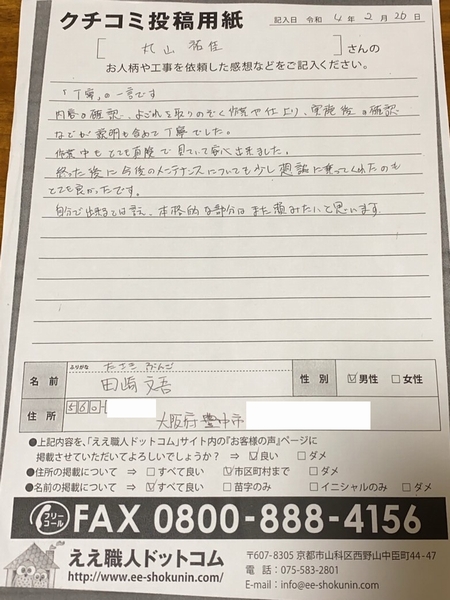 クチコミ投稿用紙
記入日 令和 4年 2月 20日
丸山 さんの
お人柄や工事を依頼した感想などをご記入ください。
「丁寧」の一言です
内容の確認、よごれを取りのぞく作業や仕上り、実施後の確認
などが説明も含めて丁寧でした。
作業中もとても で見ていて安心出来ました。
終った後に今後のメンテナンスについても少し 談に乗ってくれたのも
とても良かったです。
自分で出来るとは言え、本格的な部分はまた頼みたいと思います
ふりがな たさき ぶんご
名前 田崎 文吾 性別 ☑男性 □女性
住所 560-
大阪府豊中市
●上記内容を、「ええ職人ドットコム」サイト内の『お客様の声』ページに
掲載させていただいてよろしいでしょうか? ⇒ ☑良い □ダメ
●住所の掲載について ⇒ □すべて良い ☑市区町村まで □ダメ
●名前の掲載について ⇒ ☑すべて良い □苗字のみ □イニシャルのみ □ダメ
フリーコール FAX 0800-888-4156
ええ職人ドットコム
http://www.ee-shokunin.com/
〒607-8305 京都市山科区西野山中臣町44-47
電話:075-583-2801
E-mail:info@ee-shokunin.com